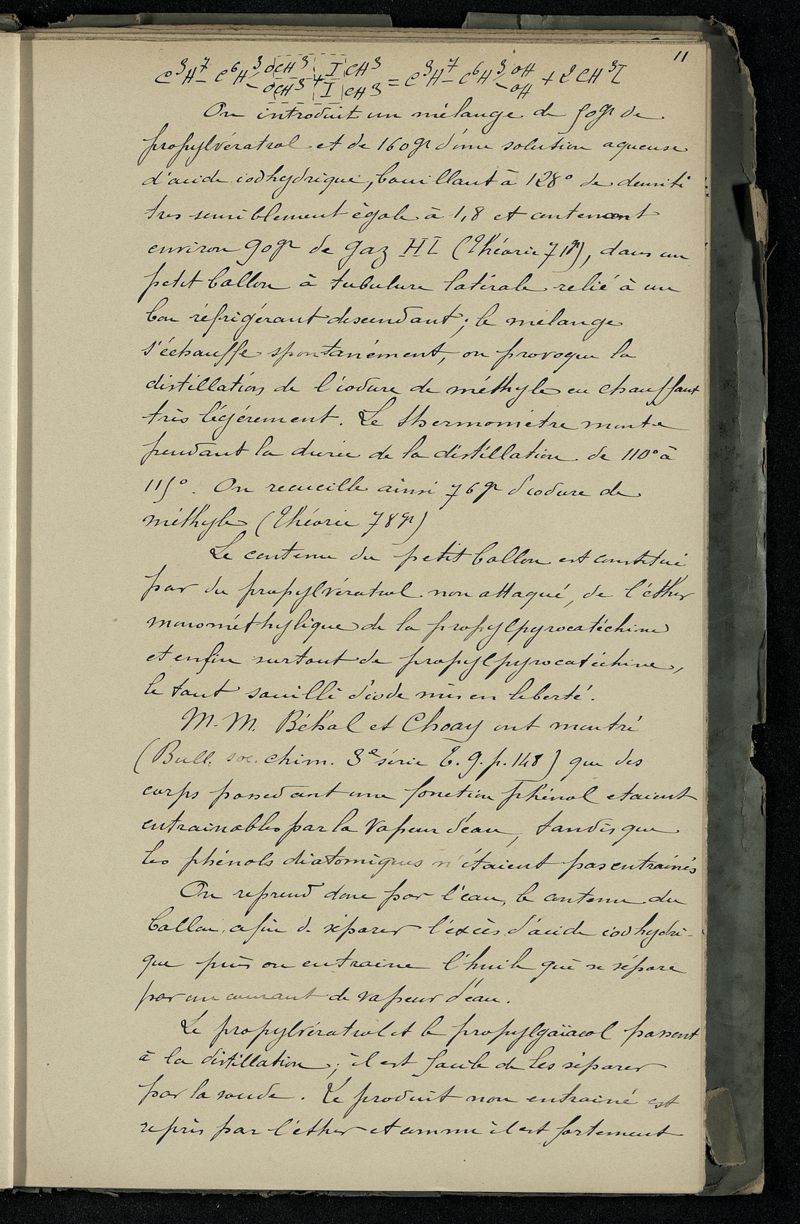 11
C³H⁷- C⁶H³ -OCH³ -OCH³ + I CH³ I CH³ = C³H⁷- C⁶H³ OH -OH + 2CH³I
On introduit un mélange de 50gr de
propylvératrol et de 160gr d'une solution aqueuse
d'acide iodhydrique, bouillant à 128° de densité
très sensiblement égale à 1,8 et contenant
environ 90gr de gaz HI (Théorie 71gr), dans un
petit ballon à tubulure latérale relié à un
bon réfrigérant descendant; le mélange
s'échauffe spontanément, on provoque la
distillation de l'iodure de méthyle en chauffant
très légèrement. Le thermomètre monte
pendant la durée de la distillation de 110° à
115°. On recueille ainsi 76gr d'iodure de
méthyle (Théorie 78gr)
Le contenu du petit ballon est constitué
par du propylvératrol non attaqué, de l'éther
monométhylique de la propylpyrocatéchine
et enfin surtout de propylpyrocatéchine,
le tout souillé d'iode mis en liberté.
M.M. Béhal et Choay ont montré
(Bull. soc. chim. 3e série T. 9. p. 148) que des
corps possedant une fonction phénol etaient
entrainables par la vapeur d'eau, tandis que
les phénols diatomiques n'étaient pas entrainés
On reprend donc par l'eau, le contenu du
ballon, afin de séparer l'excès d'acide iodhydri-
que puis on entraine l'huile qui se sépare
par un courant de vapeur d'eau.
Le propylvératrol et le propylgaïacol passent
à la distillation; il est facile de les séparer
par la soude. Le produit non entrainé est
repris par l'éther et comme il est fortement